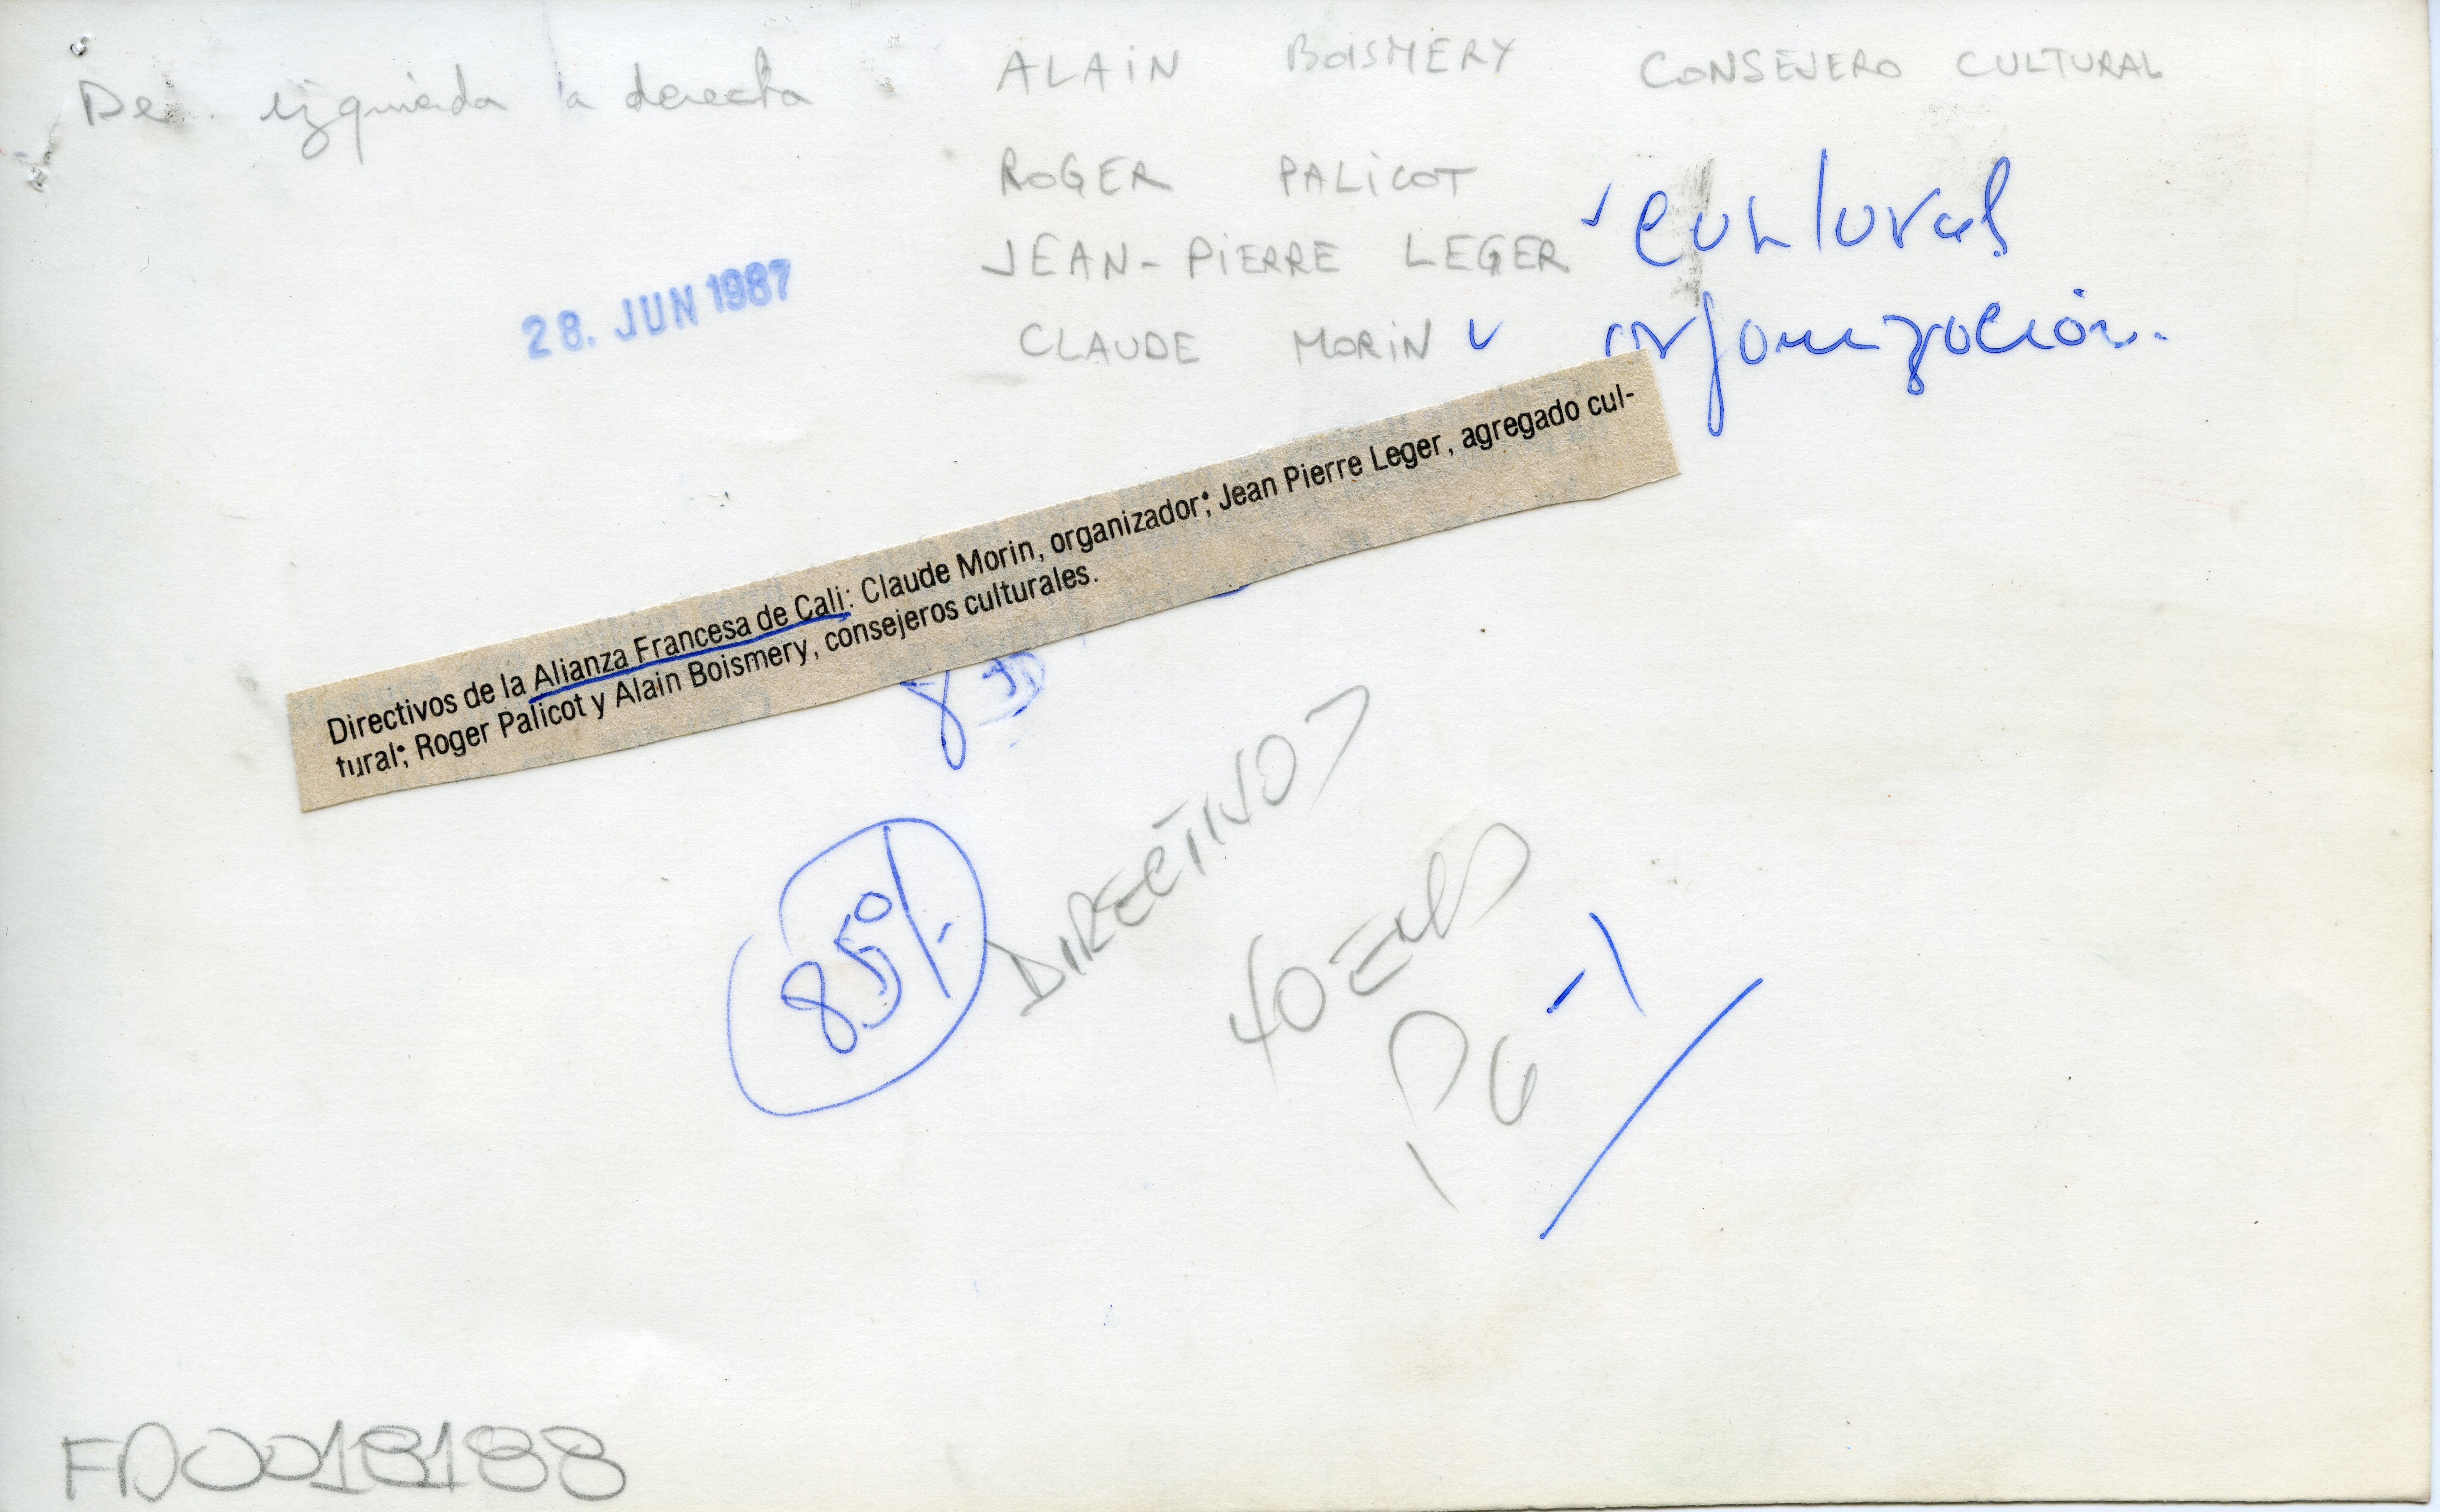 De izquierda a derecha
ALAIN BOISMERY CONSEJERO CULTURAL
ROGER PALICOT
JEAN-PIERRE LEGER cultural
CLAUDE MORIN organización.
28. JUN 1987
Directivos de la Alianza Francesa de Cali: Claude Morin, organizador; Jean Pierre Leger, agregado cul-
tural; Roger Palicot y Alain Boismery, consejeros culturales.
85%
DIRECTIVOS
40 EMS
P6-1
FD0018188